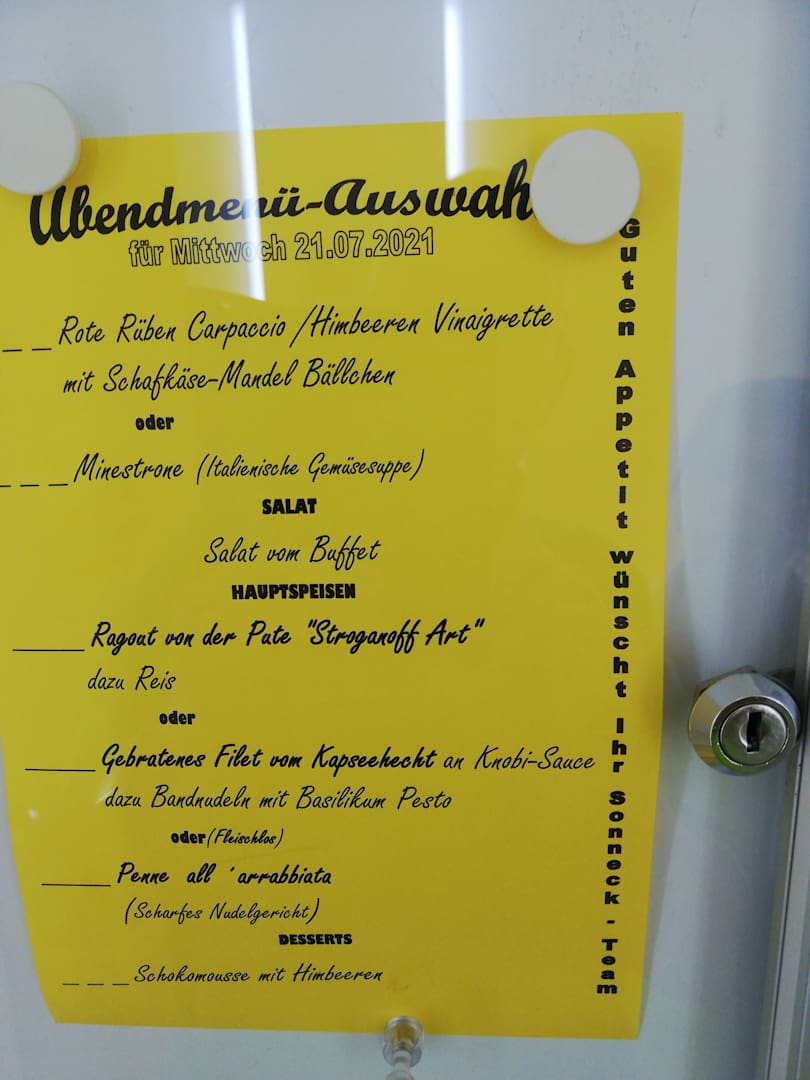 Abendmenü-Auswah
für Mittwoch 21.07.2021
_ _ Rote Rüben Carpaccio /Himbeeren Vinaigrette
mit Schafkäse-Mandel Bällchen
oder
_ _ _ Minestrone (Italienische Gemüsesuppe)
SALAT
Salat vom Buffet
HAUPTSPEISEN
_____ Ragout von der Pute "Stroganoff Art"
dazu Reis
oder
_____ Gebratenes Filet vom Kapseehecht an Knobi-Sauce
dazu Bandnudeln mit Basilikum Pesto
oder (Fleischlos)
_____ Penne all ´arrabbiata
(Scharfes Nudelgericht)
DESSERTS
_ _ _ Schokomousse mit Himbeeren
Guten Appetit wünscht Ihr Sonneck - Team